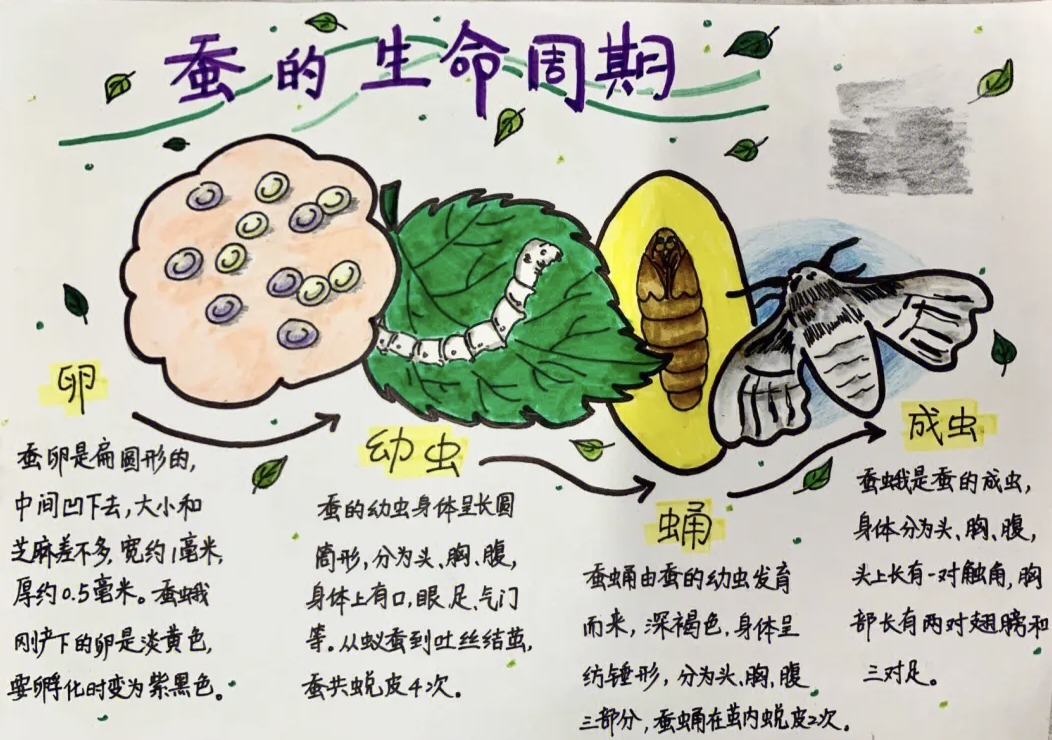 蚕的生命周期
卵
蚕卵是扁圆形的,
中间凹下去,大小和
芝麻差不多,宽约1毫米,
厚约0.5毫米。蚕蛾
刚产下的卵是淡黄色,
要孵化时变为紫黑色。
幼虫
蚕的幼虫身体呈长圆
筒形,分为头、胸、腹,
身体上有口、眼、足、气门
等。从蚁蚕到吐丝结茧,
蚕共蜕皮4次。
蛹
蚕蛹由蚕的幼虫发育
而来,深褐色,身体呈
纺锤形,分为头、胸、腹
三部分,蚕蛹在茧内蜕皮2次。
成虫
蚕蛾是蚕的成虫,
身体分为头、胸、腹,
头上长有一对触角,胸
部长有两对翅膀和
三对足。